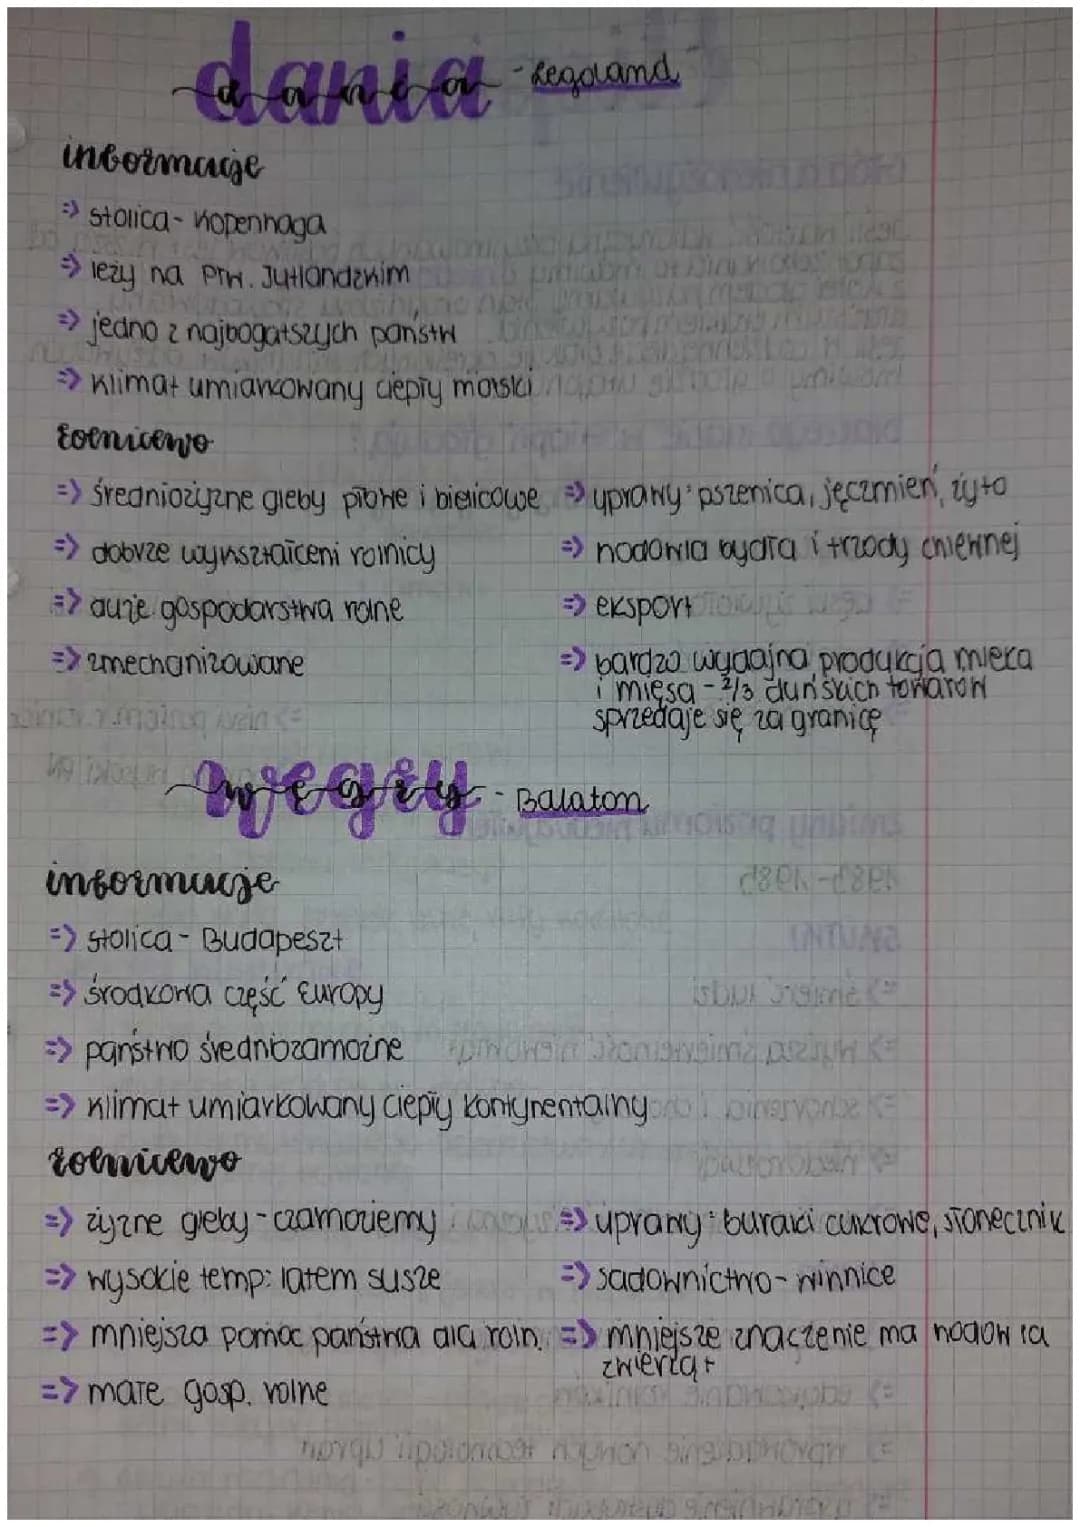 dania - Legoland
informacje
=> stolica - Kopenhaga
=> leży na Płw. Jutlandzkim
=> jedno z najbogatszych państw
=> klimat umiarkowany ciepły morski
rolnictwo
=> średniożyzne gleby płowe i bielicowe => uprawy: pszenica, jęczmień, żyto
=> dobrze wykształceni rolnicy => hodowla bydła i trzody chlewnej
=> duże gospodarstwa rolne => eksport
=> zmechanizowane => bardzo wydajna produkcja mleka
i mięsa - 2/3 duńskich towarów
sprzedaje się za granicę
węgry - Balaton
informacje
=> stolica - Budapeszt
=> środkowa część Europy
=> państwo średniozamożne
=> klimat umiarkowany ciepły kontynentalny
rolnictwo
=> żyzne gleby - czarnoziemy => uprawy: buraki cukrowe, słonecznik
=> wysokie temp: latem susze => sadownictwo - winnice
=> mniejsza pomoc państwa dla roln. => mniejsze znaczenie ma hodowla
zwierząt
=> małe gosp. rolne